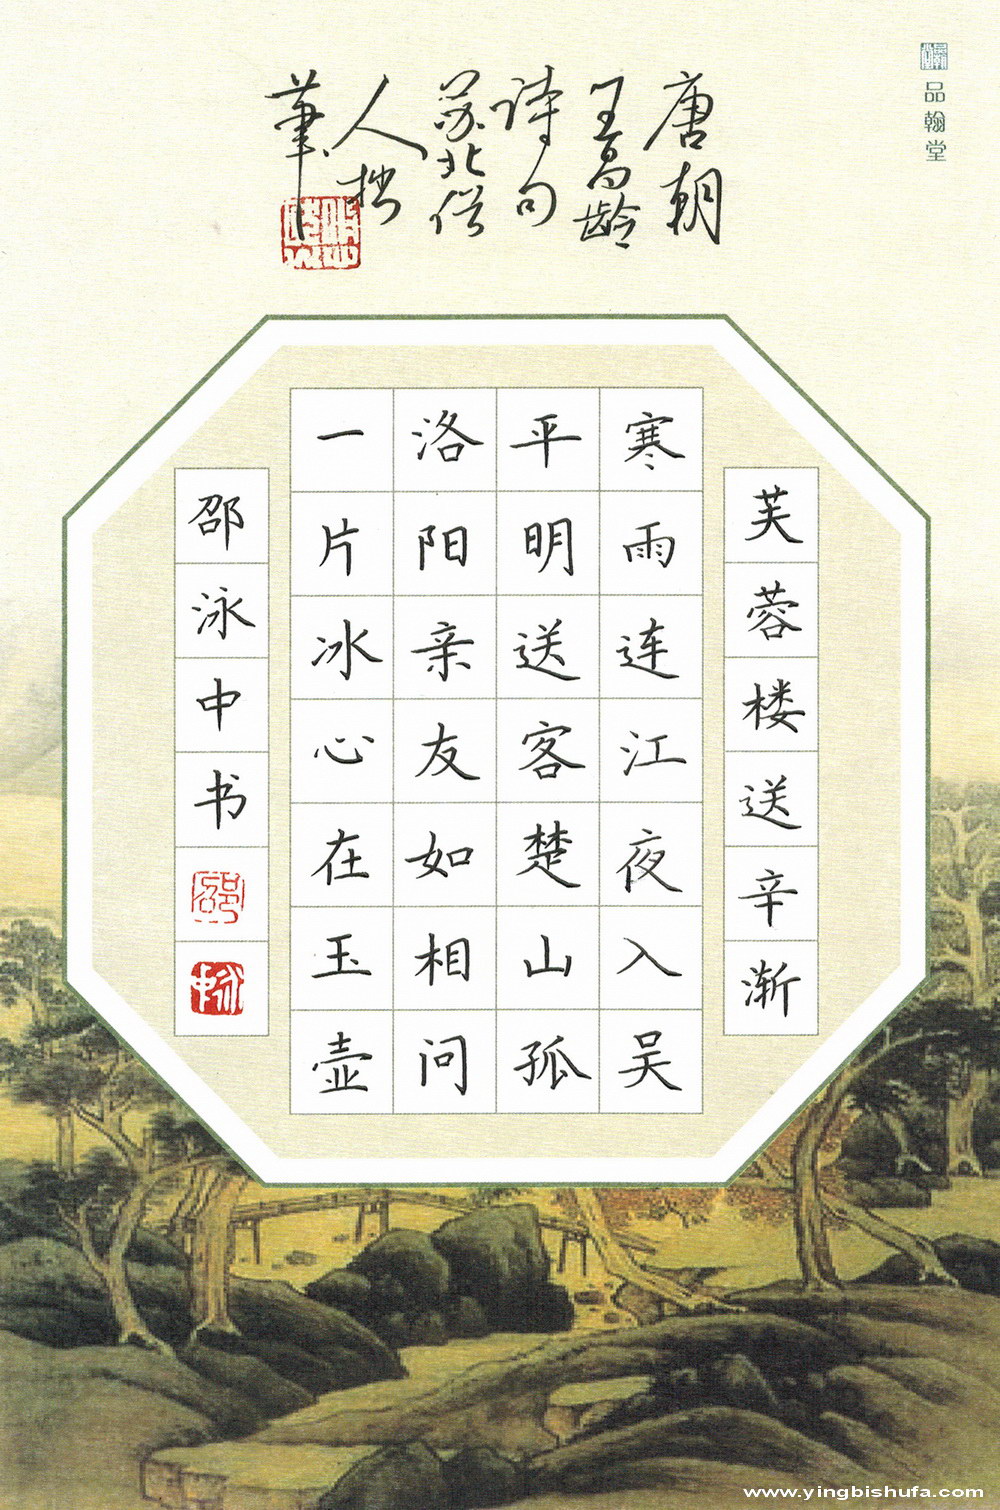 品翰堂
唐朝
王昌龄
诗句
苏北俗
人拙
筆
芙蓉楼送辛渐
寒雨连江夜入吴
平明送客楚山孤
洛阳亲友如相问
一片冰心在玉壶
邵泳中书
www.yingbishufa.com